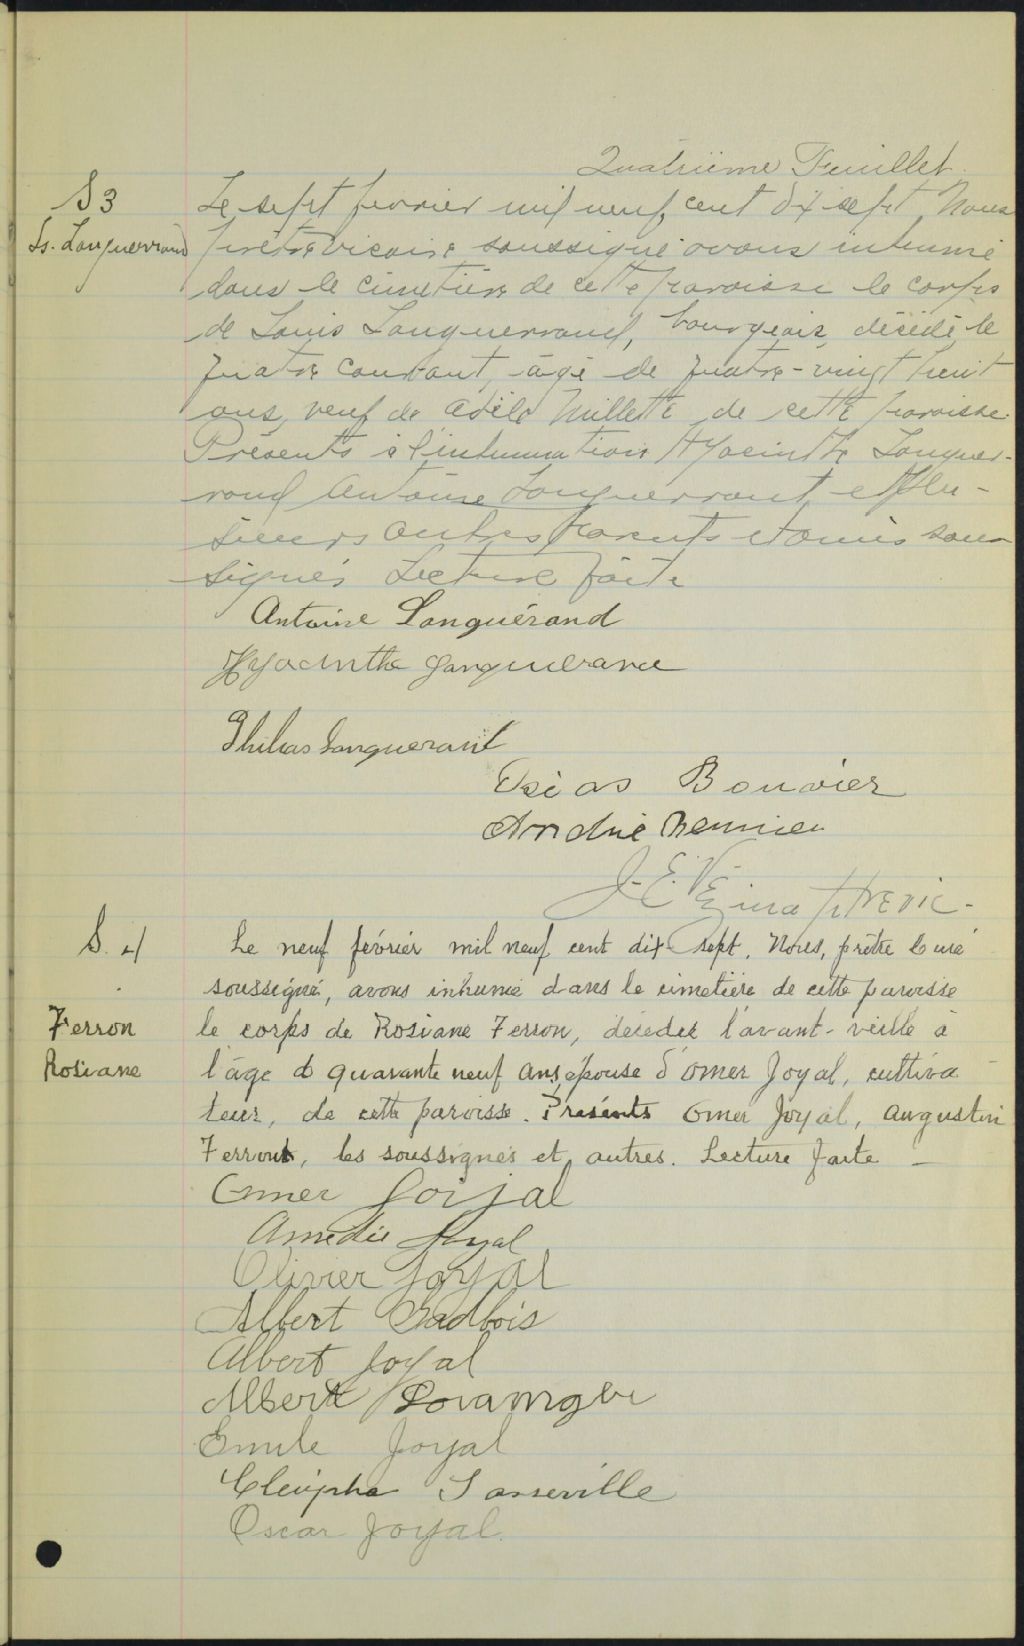 Quatrième Feuillet.
S 3
Ls. Languerrand
Le sept fevrier mil neuf cent dix sept Nous
prêtre vicaire soussigné avons inhumé
dans le cimetière de cette paroisse le corps
de Louis Languerrand, bourgeois, décédé le
quatre courant, âgé de quatre-vingt huit
ans, veuf de Adèle Millette de cette paroisse.
Présents à l'inhumation Hyacinthe Languer-
rand Antoine Languerrant et plu-
sieurs autres parents et amis sous-
signés Lecture faite
Antoine Languérand
Hyacinthe Languerand
Philias Languerant
Osias Bouvier
André
J. E. Vézina ptre vic-
S. 4
Ferron
Rosiane
Le neuf février mil neuf cent dix-sept, Nous, prêtre Curé
soussigné, avons inhumé dans le cimetière de cette paroisse
le corps de Rosiane Ferron, décédée l'avant-veille à
l'âge d quarante neuf ans, épouse d'Omer Joyal, cultiva
teur, de cette paroisse. Présents Omer Joyal, Augustin
Ferron, les soussignés et autres. Lecture faite —
Omer Joijal
Amédée Joyal
Olivier Joyal
Albert Badbois
Albert Joyal
Albert
Emile Joyal
Cléophe Sasseville
Oscar Joyal.